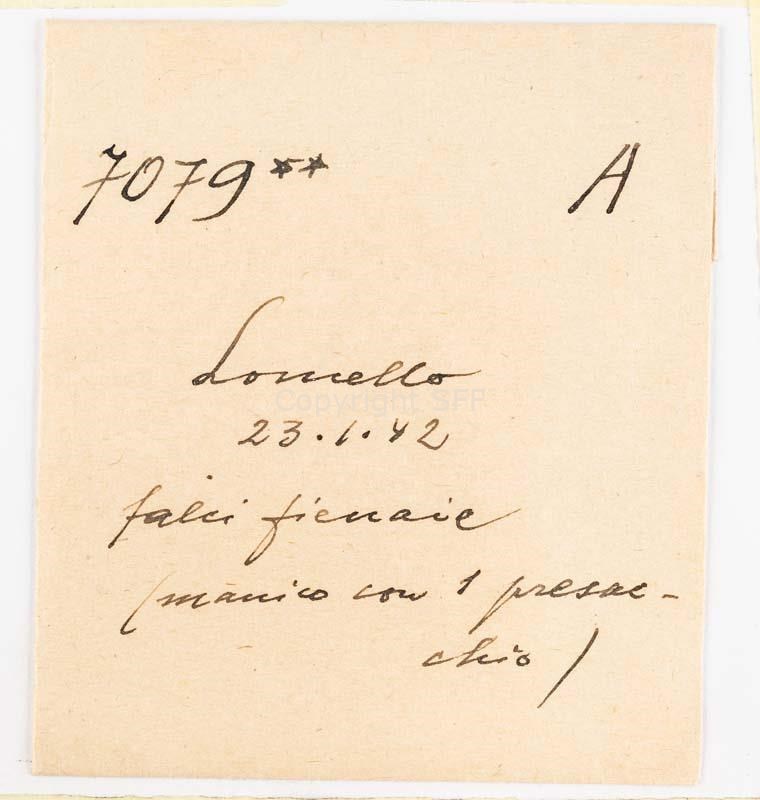 7079** A
Lomello
Copyright SFF
23.1.42
falci fienaie
(manico con 1 presac-
chio)